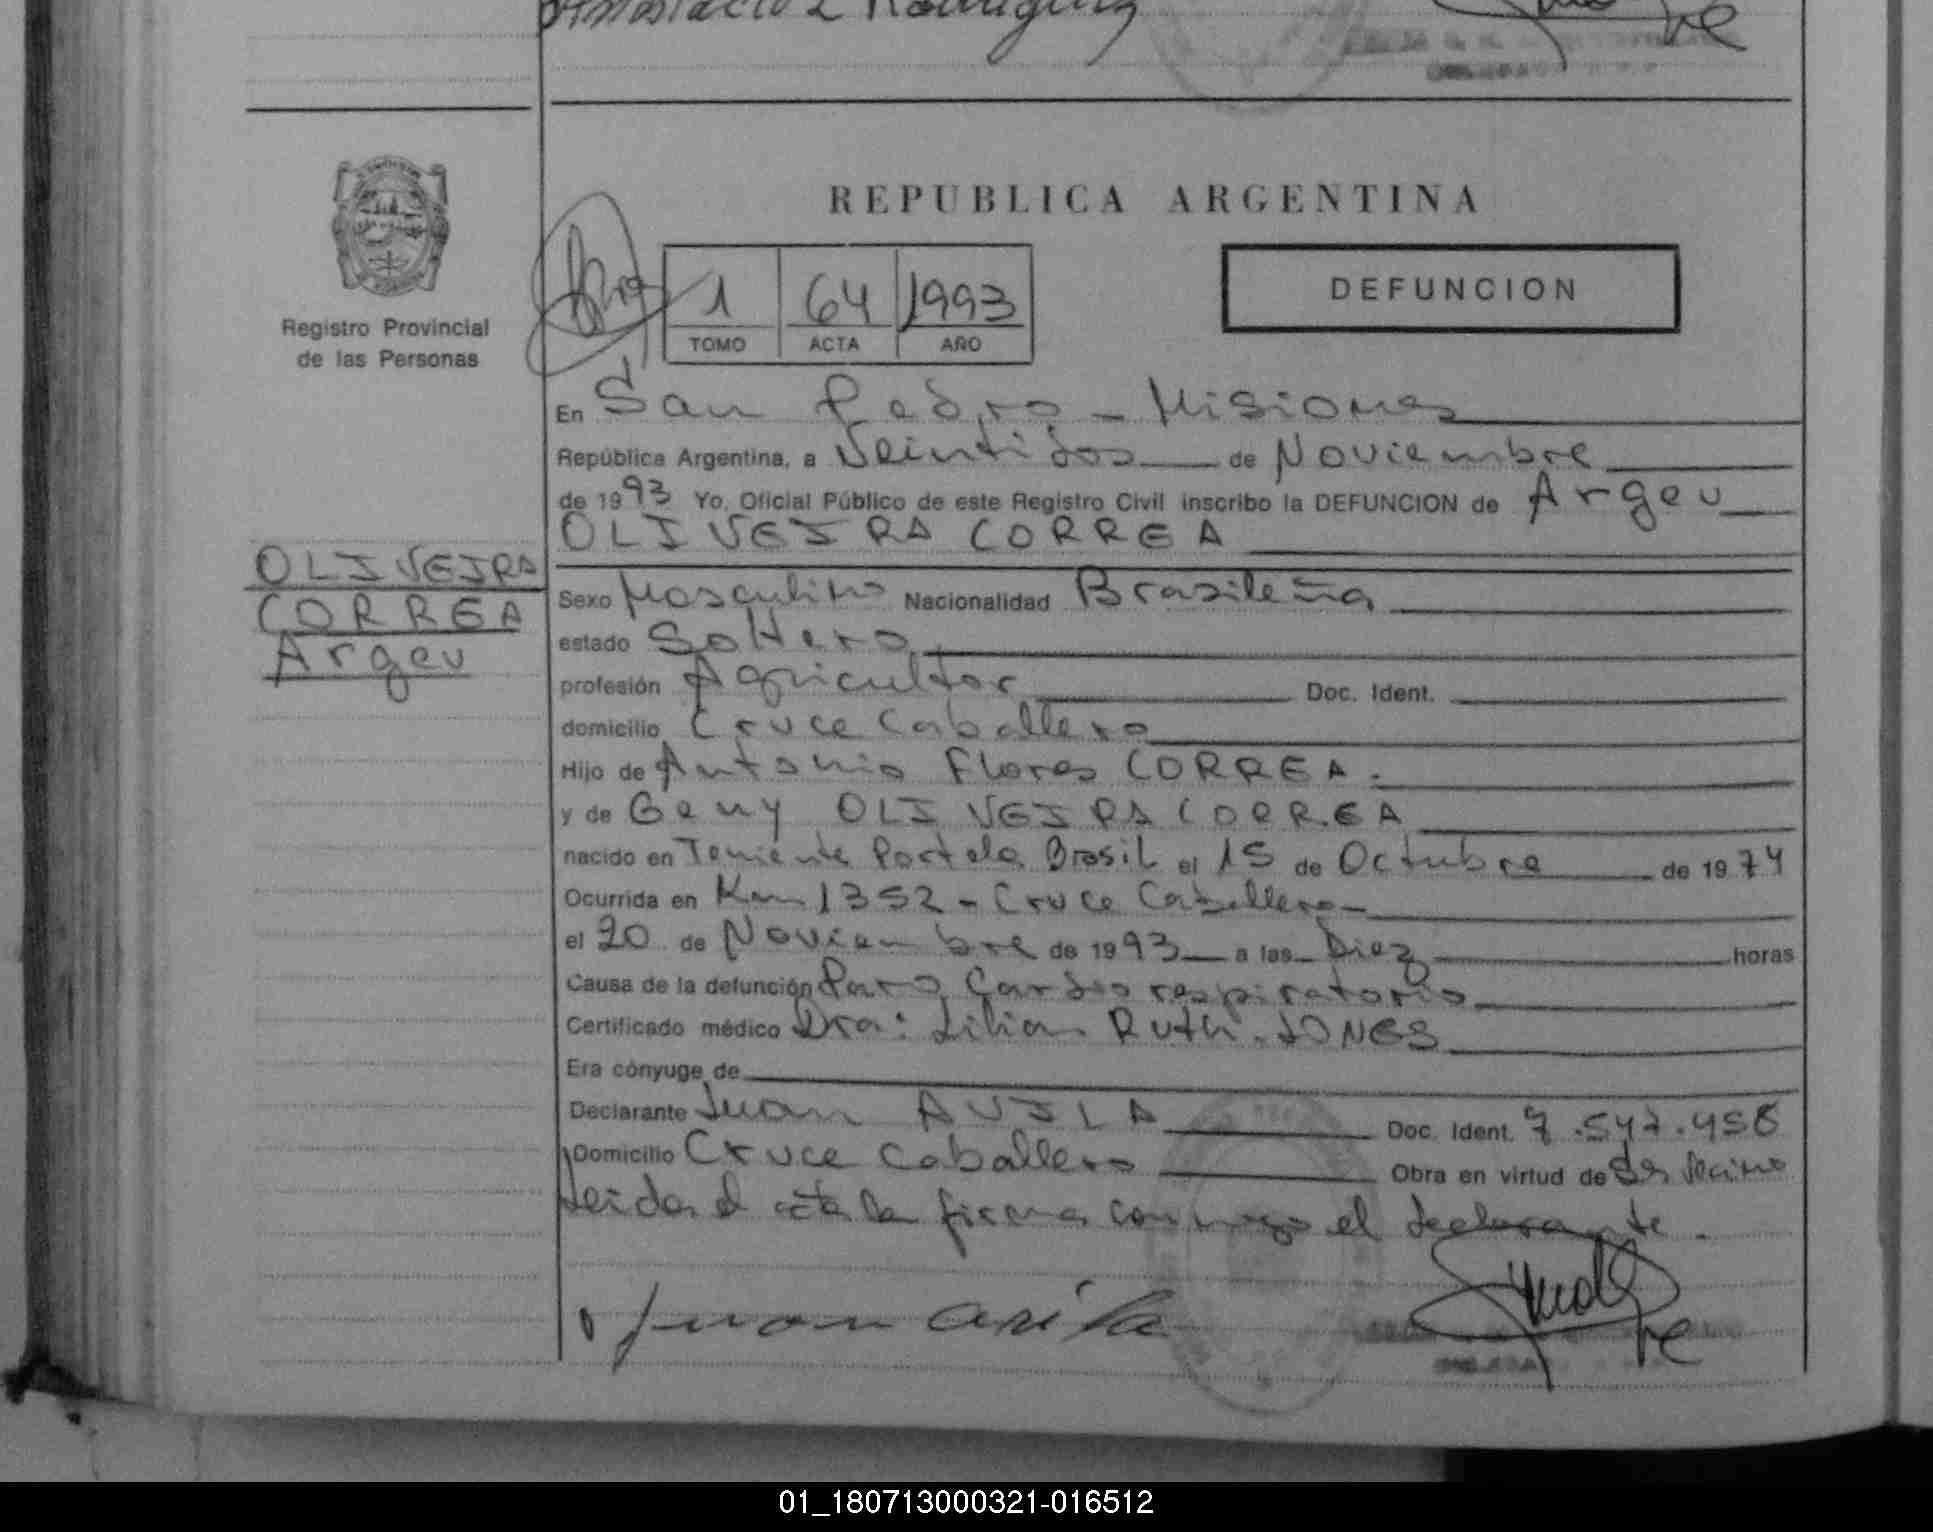 Rodriguez
REPUBLICA ARGENTINA
1 64 1993
TOMO ACTA AÑO
DEFUNCION
Registro Provincial
de las Personas
OLIVEIRA
CORREA
Argeu
En San Pedro - Misiones
República Argentina, a Veintidos de Noviembre
de 1993 Yo, Oficial Público de este Registro Civil inscribo la DEFUNCION de Argeu
OLIVEIRA CORREA
Sexo Masculino Nacionalidad Brasileña
estado Soltero
profesión Agricultor Doc. Ident.
domicilio Cruce Caballero
Hijo de Antonio Flores CORREA.
y de Geny OLIVEIRA CORREA
nacido en Teniente Portela Brasil el 15 de Octubre de 1974
Ocurrida en Km 1352 - Cruce Caballero
el 20 de Noviembre de 1993 a las Diez horas
Causa de la defunción Paro Cardio respiratorio
Certificado médico Dra: Lilian Ruth JONES
Era cónyuge de
Declarante Juan AVILA Doc. Ident. 7.547.458
Domicilio Cruce Caballero Obra en virtud de Ser Vecino
Leida el acta la firma conmigo el declarante.
Juan avila
01_180713000321-016512